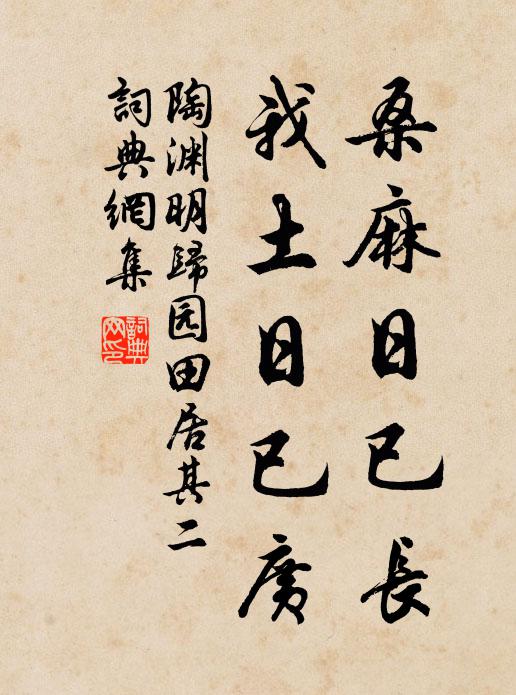 桑麻日已長
我土日已廣
陶渊明歸园田居其二
詞典網集
詞典
网印